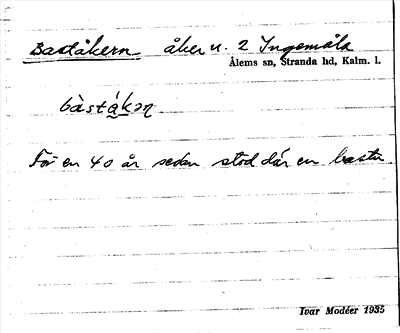 Baståkern åker n. 2 Ingemåla
Ålems sn, Stranda hd, Kalm. l.
bàstákəɳ
För en 40 år sedan stod där en bastu.
Ivar Modéer 1935